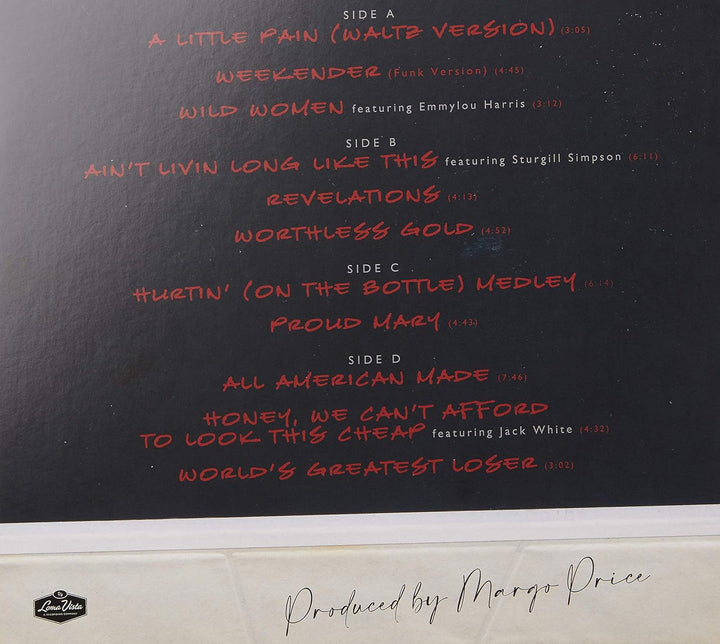 SIDE A
A LITTLE PAIN (WALTZ VERSION) (3:05)
WEEKENDER (Funk Version) (4:45)
WILD WOMEN featuring Emmylou Harris (3:12)
SIDE B
AIN'T LIVIN LONG LIKE THIS featuring Sturgill Simpson (6:11)
REVELATIONS (4:13)
WORTHLESS GOLD (4:52)
SIDE C
HURTIN' (ON THE BOTTLE) MEDLEY (6:14)
PROUD MARY (4:43)
SIDE D
ALL AMERICAN MADE (7:46)
HONEY, WE CAN'T AFFORD
TO LOOK THIS CHEAP featuring Jack White (4:32)
WORLD'S GREATEST LOSER (3:02)
Produced by Margo Price
Loma Vista